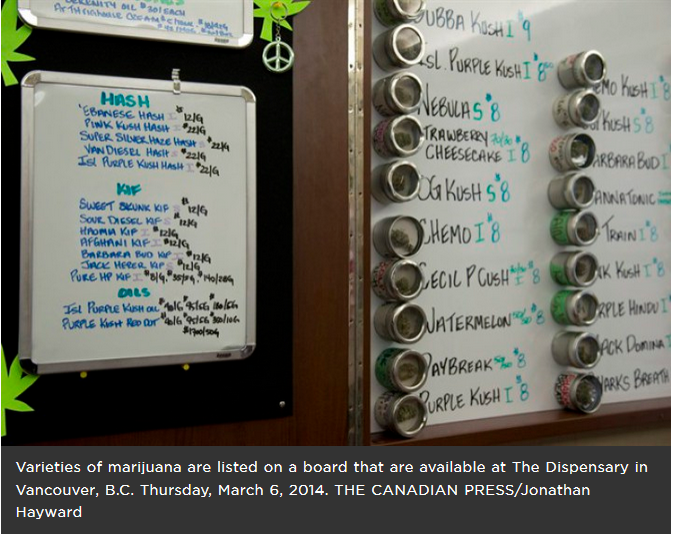 SERENITY OIL $30/EACH
HASH
'EBANESE HASH I $12/G
PINK KUSH HASH I $22/G
SUPER SILVER HAZE HASH S $22/G
VAN DIESEL HASH S $22/G
ISL PURPLE KUSH HASH I $22/G
KIF
SWEET SKUNK KIF S $12/G
SOUR DIESEL KIF S 12/G
HAOMA KIF I $12/G
AFGHANI KIF I $12/G
BARBARA BUD KIF I $12/G
JACK HERER KIF S $12/G
PURE HP KIF I $8/G, $35/5G, $140/28G
OILS
ISL PURPLE KUSH OIL
PURPLE KUSH RED DOT
$1700/50G
UBBA KUSH I $9
SL. PURPLE KUSH I $8
NEBULA S $8
TRAWBERRY
CHEESECAKE I 8
OG KUSH S $8
CHEMO I $8
CECIL P CUSH I $8
WATERMELON $8
DAYBREAK $8
PURPLE KUSH I $8
EMO KUSH I $8
KUSH S $8
ARBARA BUD I
ANNATONIC
TRAIN I $8
K KUSH I $8
RPLE HINDU I
ACK DOMINA I
HARKS BREATH
Varieties of marijuana are listed on a board that are available at The Dispensary in
Vancouver, B.C. Thursday, March 6, 2014. THE CANADIAN PRESS/Jonathan
Hayward